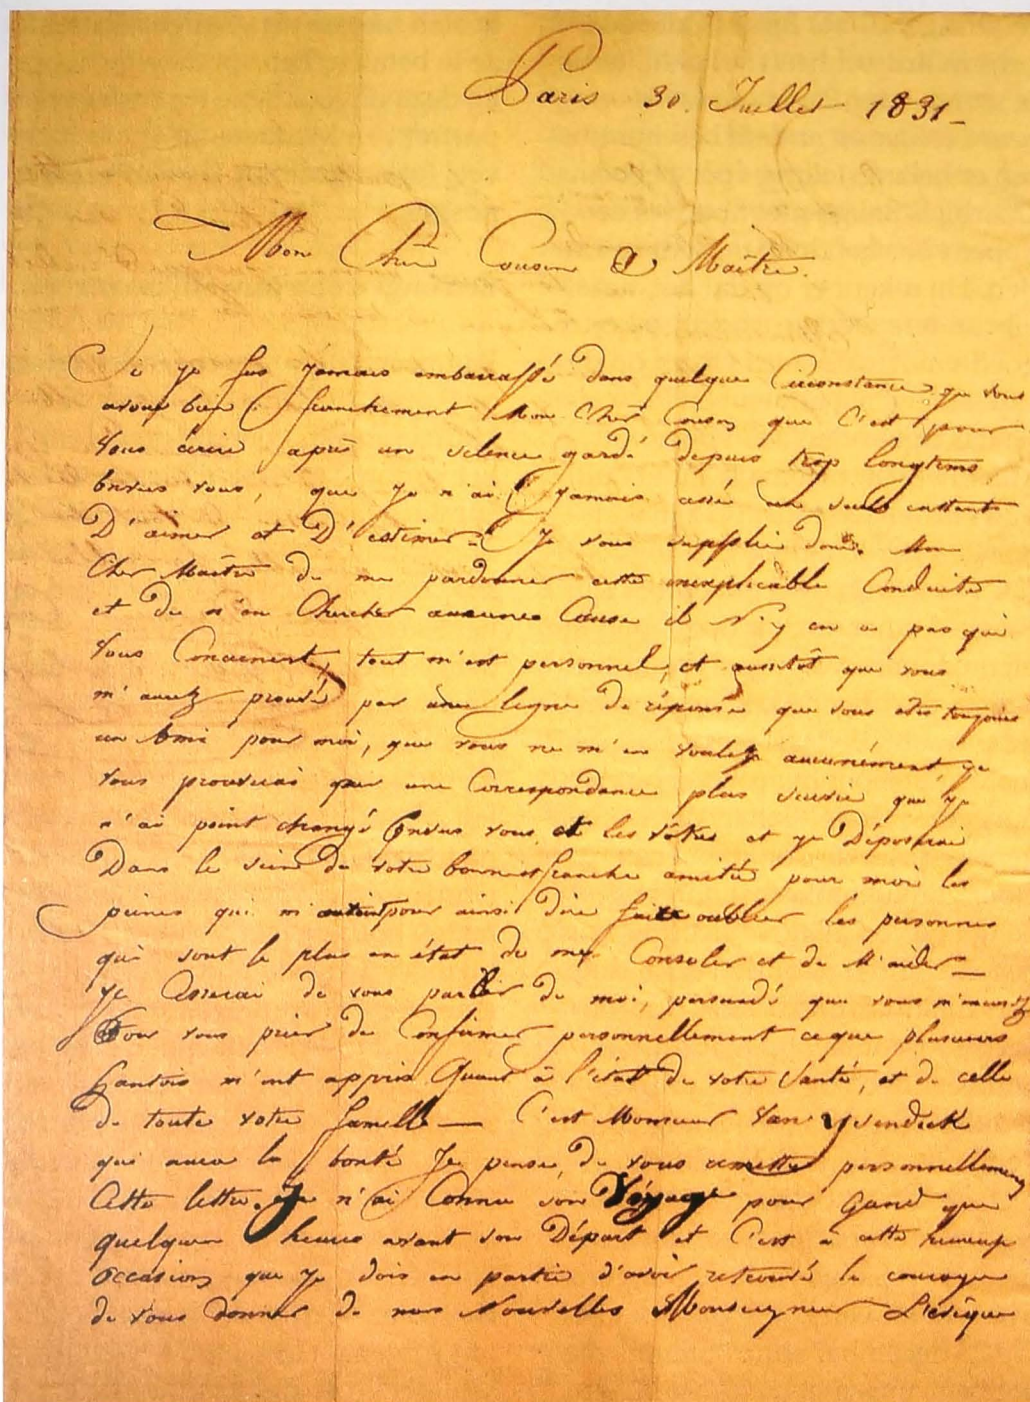 Paris 30. Juillet 1831 –
Mon Cher Cousin & Maître.
Si je fus jamais embarrassé dans quelque Circonstance, je vous
avoue bien franchement Mon Cher Cousin que C'est pour
Vous écrire après un silence gardé depuis trop longtems
Envers vous, que Je n'ai jamais cessé un seul instant
D'aimer et D'estimer. Je vous supplie donc Mon
Cher Maître de me pardonner cette inexplicable Conduite
et de n'en Chercher aucune Cause il N'y en a pas qui
Vous Concernent, tout m'est personnel, et aussitôt que vous
m'aurez prouvé par une ligne de réponse que vous etes toujours
un Ami pour moi, que vous ne m'en voulez aucunément je
vous prouverai par une Correspondance plus suivie que je
n'ai point changé Envers vous et les vôtres et je Déposerai
Dans le sein de votre bonne et franche amitié pour moi les
peines qui m'ont pour ainsi dire fait oublier les personnes
qui sont le plus en état de me Consoler et de M'aider –
Je Cesserai de vous parler de moi, persuadé que vous
Pour vous prier de Confirmer personnellement ce que plusieurs
Gantois m'ont appris Quant à l'état de votre Santé, et de celle
de toute votre famille — C'est Monsieur Van
qui aura la bonté Je pense, de vous remettre personnellement
Cette lettre. Je n'ai Connu son Voyage pour Gand que
quelques heures avant son Départ et C'est à cette heureuse
Occasion que je dois en partie d'avoir retrouvé le courage
de vous donner de mes Nouvelles Monseigneur L'évêque